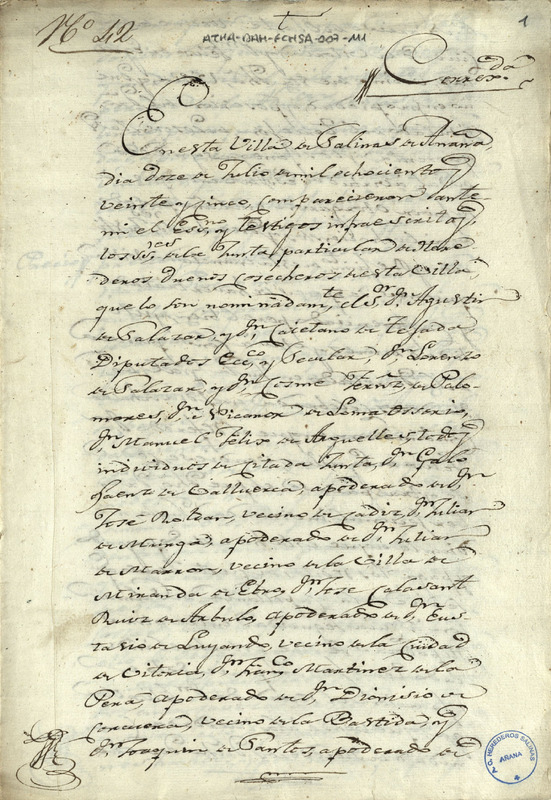 Nº 42
ATHA-DAH-FCHSA-007-111
1
Correxda
En esta Villa de Salinas de Añana
dia doze de Julio de mil ochocientos
veinte y zinco, comparecieron ante
mi el Esno. y testigos infraescritos
los SS.res de la Junta particular de Here
deros dueños cosecheros de esta Villa
que lo son nominadamte. el Sor. Dn. Agustin
de Salazar, y Dn. Caietano de Tejada
Diputados Ecco. y Secular, Dn. Lorenzo
de Salazar, y Dn. Cosme Fernz. de Palo-
mares, Dn. Nicanor de Lema Ossorio,
Dn. Manuel Felix de Arguelles, todos
individuos de citada Junta, Dn. Galo
Saenz de Valluerca, apoderado de Dn.
José Roldan, vecino de Cadiz, Dn. Julian
de Munga, apoderado de Dn. Julian
de Marron, vecino de la Villa de
Miranda de Ebro, Dn. Jose Calasant
Ruiz de Arbulo, apoderado de Dn. Eus-
tasio de Luyando, vecino de la Ciudad
de Vitoria, Dn. Franco. Martinez de la
Pena, apoderado de Dn. Dionisio de
Corcuera, vecino de la Bastida, y
Dn. Joaquin de Santos, apoderado de
A.C. HEREDEROS SALINAS
AÑANA